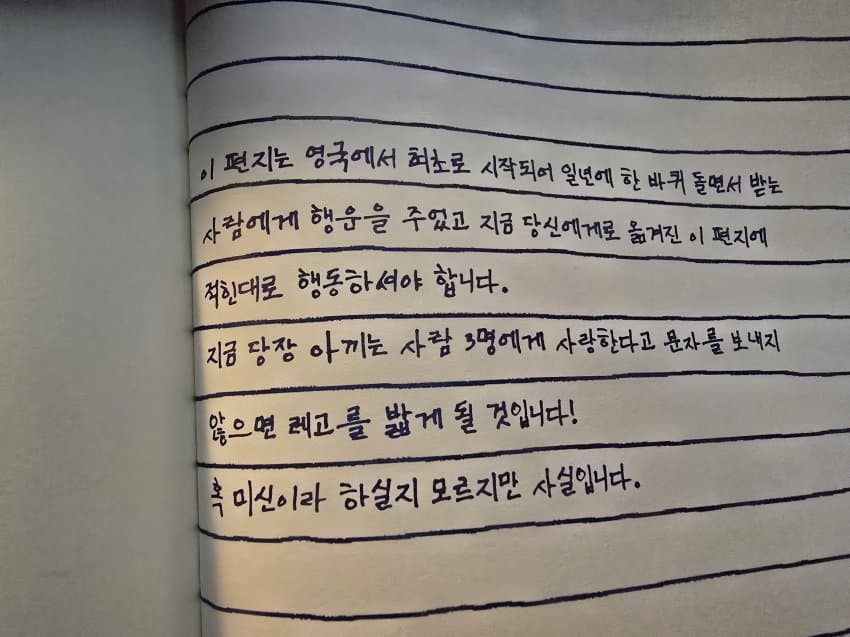 이 편지는 영국에서 최초로 시작되어 일년에 한 바퀴 돌면서 받는
사람에게 행운을 주었고 지금 당신에게로 옮겨진 이 편지에
적힌대로 행동하셔야 합니다.
지금 당장 아끼는 사람 3명에게 사랑한다고 문자를 보내지
않으면 레고를 밟게 될 것입니다!
혹 미신이라 하실지 모르지만 사실입니다.